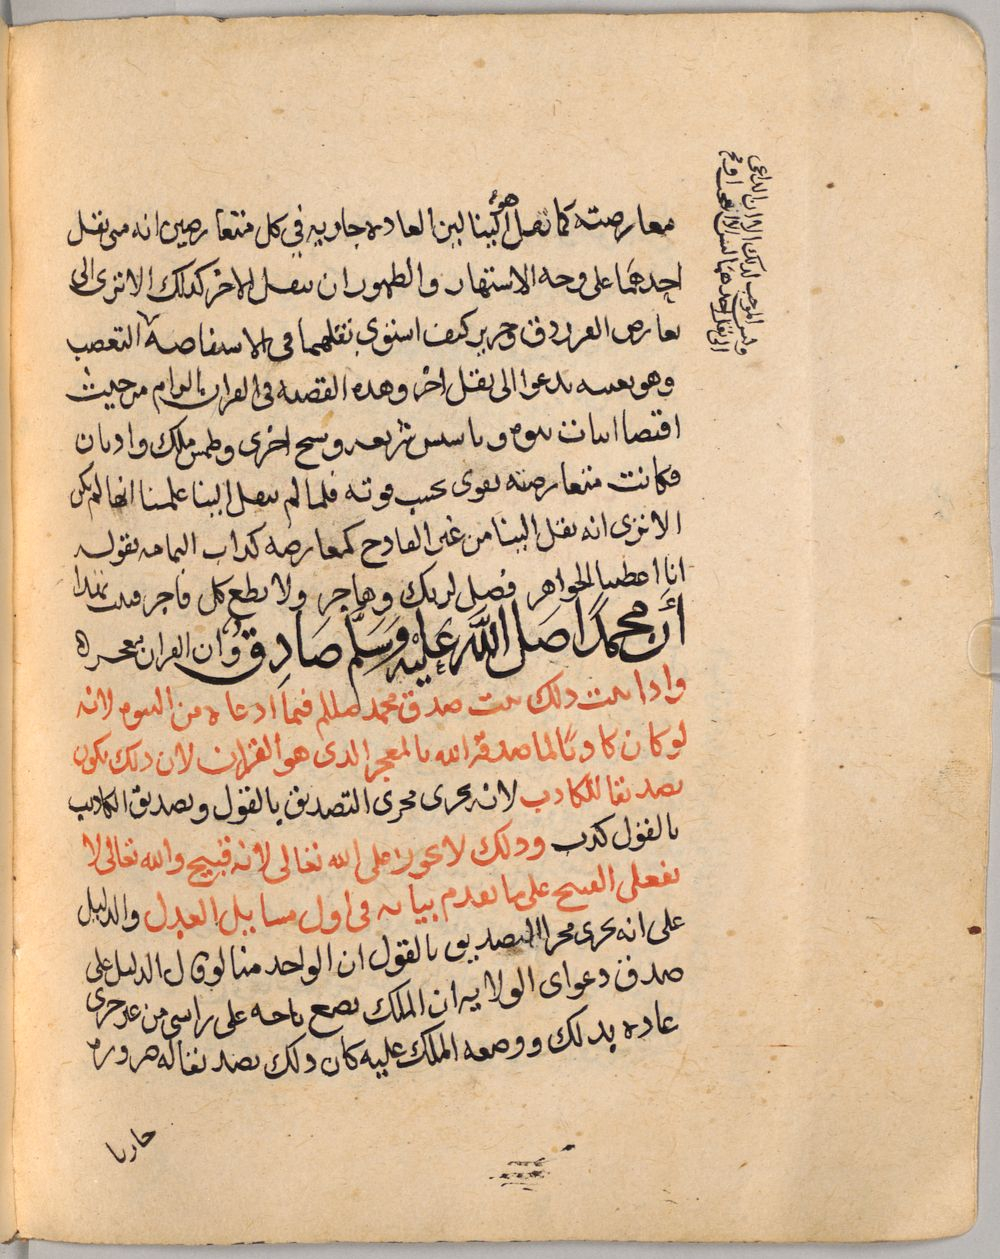 معارضته كما نقل هو الينا لان العادة جارية في كل متعارضين انه متى نقل
احدهما على وجه الاشتهار والظهور ان ينقل الاخر كذلك الا ترى الى
تعارض الفرزدق وجرير كيف استوى نقلهما في الاستفاضة التعصب
وهو بعينه يدعوا الى نقل اخر وهذه القصة في القران بالزام من حيث
اقتضا اثبات نبوه وتاسيس شريعه ونسخ اخرى وطمس ملك واديان
فكانت متعارضته تقوى بحسب قوته فلما لم ينقل الينا علمنا انها لم تكن
الا ترى انه نقل الينا من غير القادح كمعارضه كذاب اليمامه بقوله
انا اعطيناك الجواهر فصل لربك وهاجر ولا تطع كل فاجر فثبت بهذا
أن محمدًا صلى الله عليه وسلم صادق وان القران معجزه
واذا ثبت ذلك ثبت صدق محمد صللم فيما ادعاه من النبوه لانه
لو كان كاذبًا لما صدقه الله بالمعجز الذى هو القران لان ذلك يكون
تصديقا للكاذب لانه يجرى مجرى التصديق بالقول وتصديق الكاذب
بالقول كذب وذلك لا يجوز على الله تعالى لانه قبيح والله تعالى لا
يفعل القبيح على ما تقدم بيانه في اول مسايل العدل والدليل
على انه يجرى مجرا التصديق بالقول ان الواحد منا لو قال الدليل على
صدق دعواى الولايه ان الملك يضع تاجه على راسى من غير جرى
عاده بذلك ووضعه الملك عليه كان ذلك تصديقا له ضروره
جاريا
وليس الموجب لذلك الا ان الداعى
الى نقل احدهما ليس الا